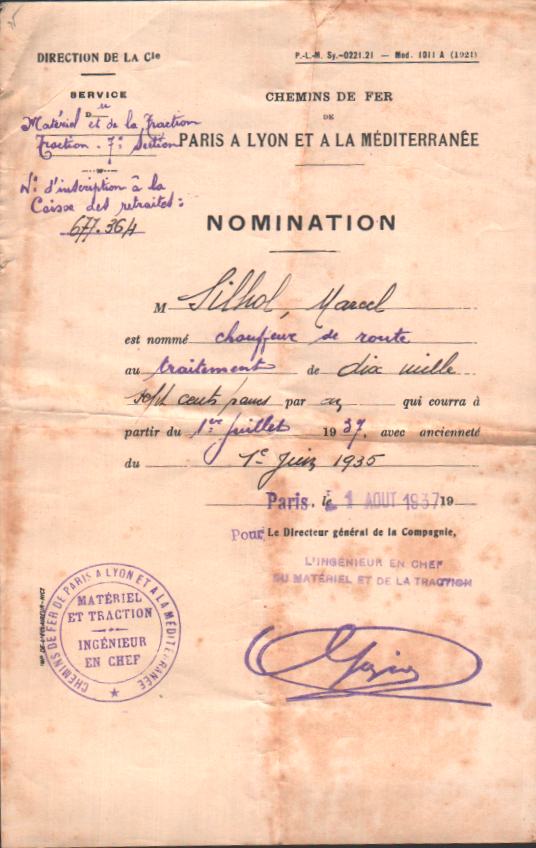 DIRECTION DE LA Cie
P.-L.-M. Sy.-0221.21 — Mod. 1011 A (1921)
SERVICE
Du
Matériel et de la Traction
Traction. 7e Section
N° d'inscription à la
Caisse des retraites:
677.364
CHEMINS DE FER
DE
PARIS A LYON ET A LA MÉDITERRANÉE
NOMINATION
M Silhol, Marcel
est nommé chauffeur de route
au traitement de dix mille
sept cents francs par an qui courra à
partir du 1er Juillet 1937, avec ancienneté
du 1er Juin 1935
Paris, le 1 AOUT 1937 19
Pour Le Directeur général de la Compagnie,
L'INGÉNIEUR EN CHEF
DU MATÉRIEL ET DE LA TRACTION
CHEMINS DE FER DE PARIS A LYON ET A LA MÉDITERRANÉE
MATÉRIEL
ET TRACTION
INGÉNIEUR
EN CHEF